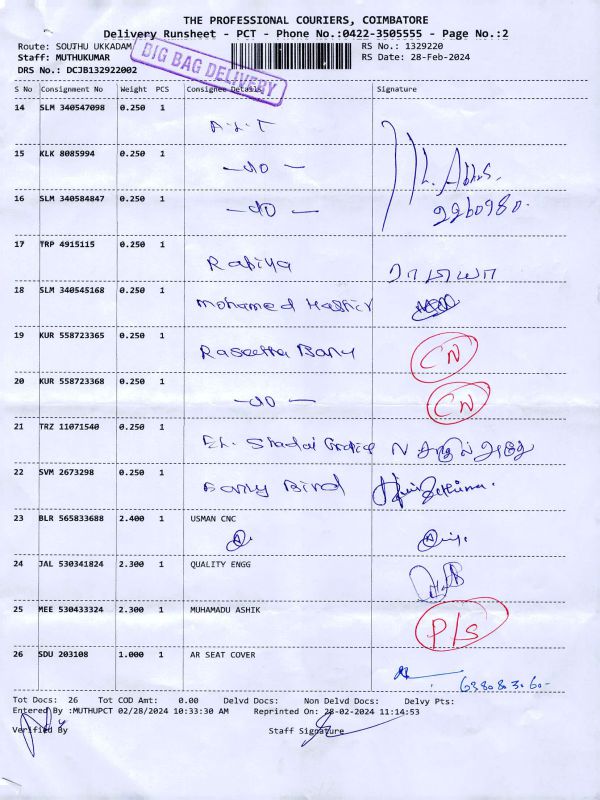 THE PROFESSIONAL COURIERS, COIMBATORE
Delivery Runsheet - PCT - Phone No.:0422-3505555 - Page No.:2
Route: SOUTHU UKKADAM RS No.: 1329220
Staff: MUTHUKUMAR RS Date: 28-Feb-2024
DRS No.: DCJB132922002
BIG BAG DELIVERY
S No Consignment No Weight PCS Consignee Details Signature
14 SLM 340547098 0.250 1
15 KLK 8085994 0.250 1
- do -
16 SLM 340584847 0.250 1
- do -
17 TRP 4915115 0.250 1
Rabiya
18 SLM 340545168 0.250 1
Mohamed
19 KUR 558723365 0.250 1
Raseetha Banu CN
20 KUR 558723368 0.250 1
- do - CN
21 TRZ 11071540 0.250 1
22 SVM 2673298 0.250 1
Early Bird
23 BLR 565833688 2.400 1 USMAN CNC
24 JAL 530341824 2.300 1 QUALITY ENGG
25 MEE 530433324 2.300 1 MUHAMADU ASHIK
P/S
26 SDU 203108 1.000 1 AR SEAT COVER
Tot Docs: 26 Tot COD Amt: 0.00 Delvd Docs: Non Delvd Docs: Delvy Pts:
Entered By :MUTHUPCT 02/28/2024 10:33:30 AM Reprinted On :28-02-2024 11:14:53
Verified By Staff Signature